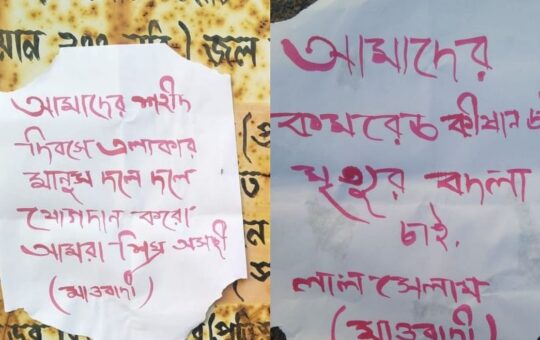 জল
আমাদের শহীদ
দিবসে এলাকার
মানুষ দলে দলে
যোগদান করো
আমরা শিঘ্র অসছী
(মাওবাদী)
আমাদের
কমরেড কীষান
মৃত্যুর বদলা
চাই.
লাল সেলাম
(মাওবাদী)